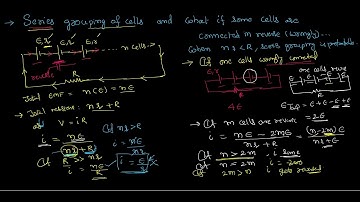 → Series grouping of cells and what if some cells are
connected in reverse (wrongly)...
when nr < R, series grouping is preferable
E,r E,r E,r
← n cells →
reverse
R
Total EMF = n(E) = nE
→ Total resistance: nr + R
→ V = iR
i = nE
nr + R
If R >> nr
i = nE
R
If nr > R
i = nE
nr
i = E
r
→ If one cell wrongly connected
E,r
one cell reverse
R
4E
-2E
→ If m cells are reverse
i = nE - 2mE
nr + R
= (n-2m)E
nr + R
If n > 2m → i
If n = 2m i = zero
If 2m > n i get reversed